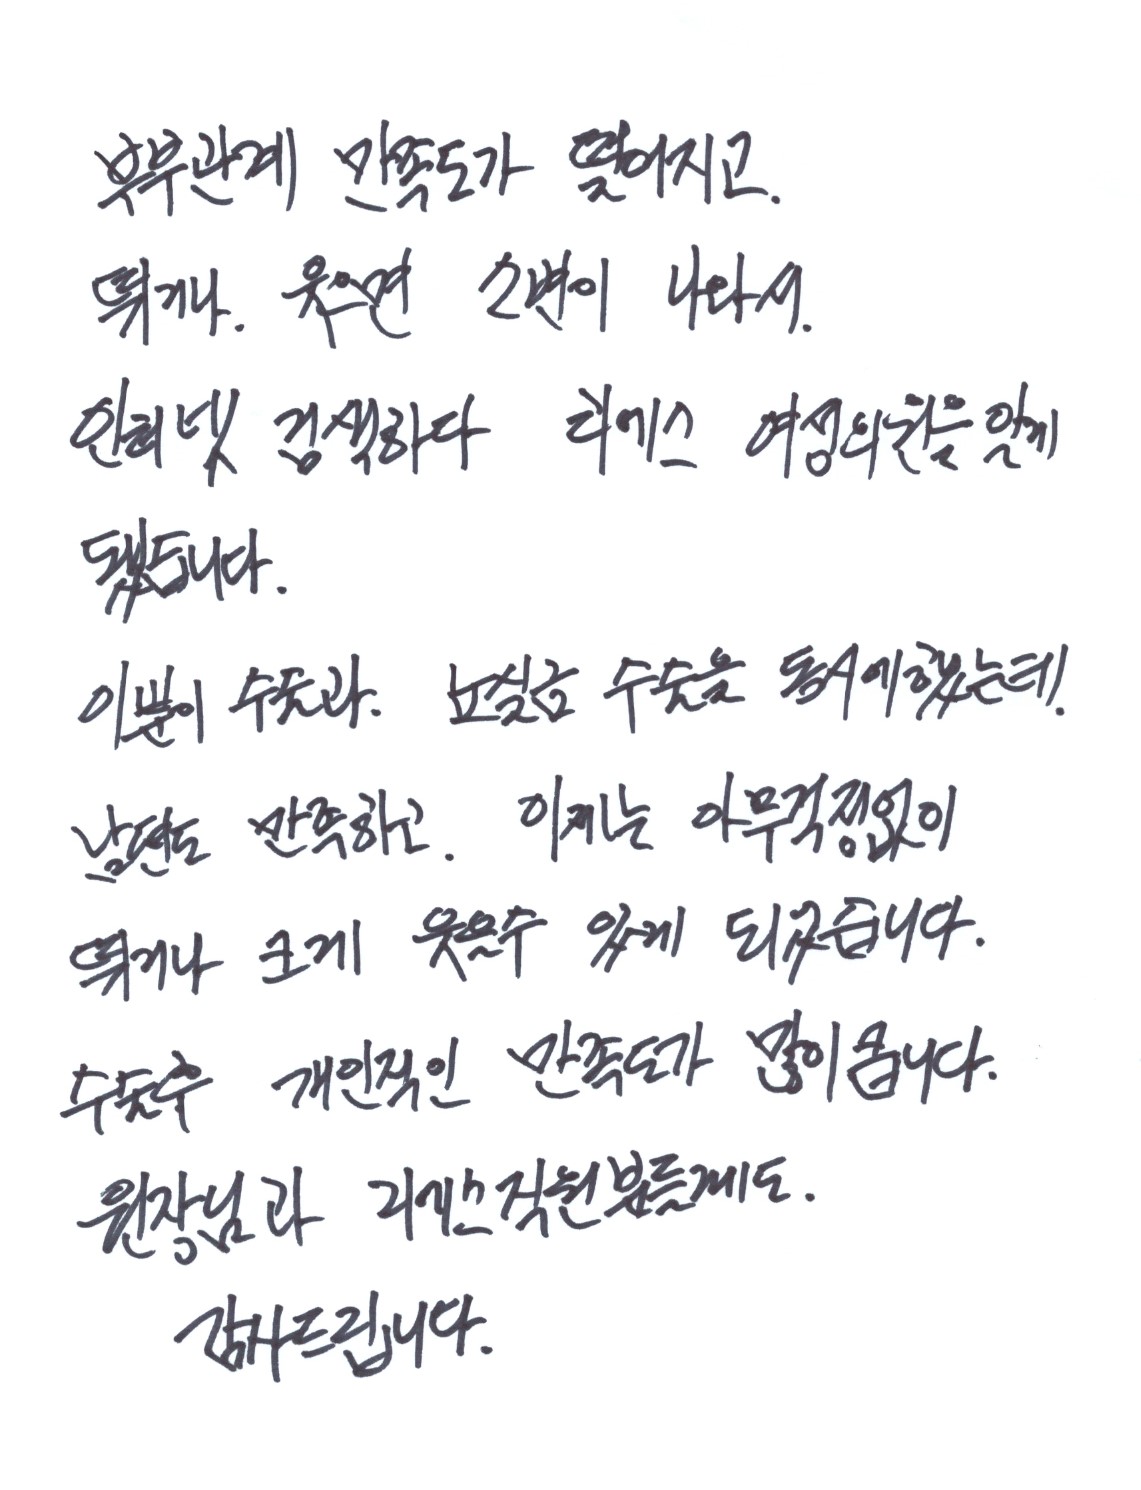 부부관계 만족도가 떨어지고.
뛰거나. 웃으면 소변이 나와서.
인터넷 검색하다 리에스 여성의원을 알게
됐습니다.
이쁜이 수술과. 요실금 수술을 동시에 했는데.
남편도 만족하고. 이제는 아무걱정없이
뛰거나 크게 웃을수 있게 되었습니다.
수술후 개인적인 만족도가 많이 큽니다.
원장님과 리에스 직원분들께도.
감사드립니다.